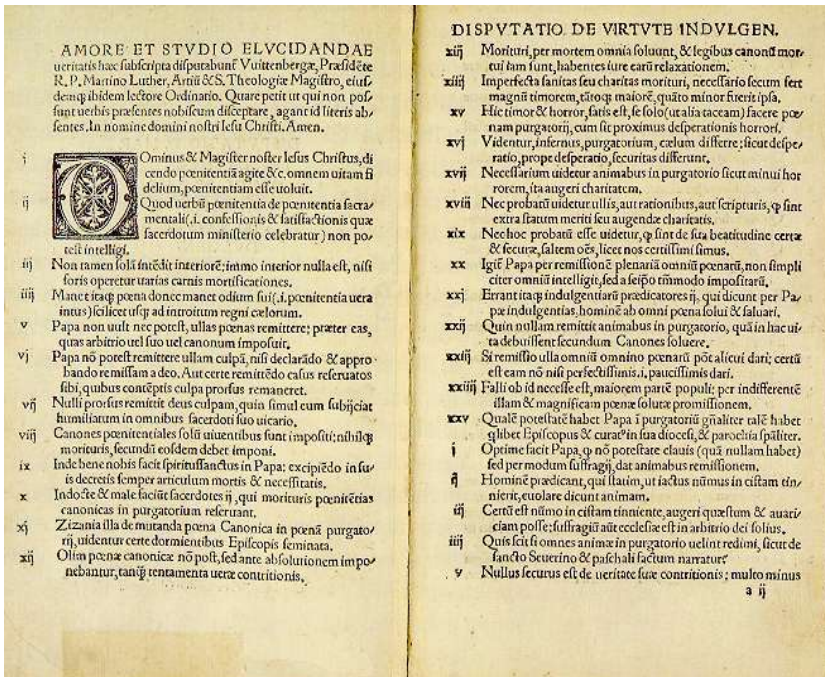 AMORE ET STVDIO ELVCIDANDAE
ueritatis hæc subscripta disputabunt̄ Vuittenbergæ, Præsidēte
R. P. Martino Luther, Artiū & S. Theologiæ Magistro, eius/
demq̃ ibidem lectore Ordinario. Quare petit ut qui non pos/
sunt uerbis præsentes nobiscum disceptare, agant id literis ab/
sentes. In nomine domini nostri Iesu Christi. Amen.
i DOminus & Magister noster Iesus Christus, di
cendo pœnitentiā agite &c. omnem uitam fi
delium, pœnitentiam esse uoluit.
ij Quod uerbū pœnitentia de pœnitentia sacra/
mentali (.i. confessionis & satisfactionis quæ
sacerdotum ministerio celebratur) non po/
test intelligi.
iij Non tamen solā intēdit interiorē; immo interior nulla est, nisi
foris operetur uarias carnis mortificationes.
iiij Manet itaq̃ pœna donec manet odium sui (.i. pœnitentia uera
intus) scilicet usq̃ ad introitum regni cælorum.
v Papa non uult nec potest, ullas pœnas remittere; præter eas,
quas arbitrio uel suo uel canonum imposuit.
vj Papa nō potest remittere ullam culpā, nisi declarādo & appro/
bando remissam a deo. Aut certe remittēdo casus reseruatos
sibi, quibus contēptis culpa prorsus remaneret.
vij Nulli prorsus remittit deus culpam, quin simul eum subijciat
humiliatum in omnibus sacerdoti suo uicario.
viij Canones pœnitentiales solū uiuentibus sunt impositi; nihilq̃
morituris, secundū eosdem debet imponi.
ix Inde bene nobis facit spiritussanctus in Papa; excipiēdo in su/
is decretis semper articulum mortis & necessitatis.
x Indocte & male faciūt sacerdotes ij, qui morituris pœnitētias
canonicas in purgatorium reseruant.
xj Zizania illa de mutanda pœna Canonica in pœnā purgato/
rij, uidentur certe dormientibus Episcopis seminata.
xij Olim pœnæ canonicæ nō post, sed ante absolutionem impo/
nebantur, tanq̃ tentamenta ueræ contritionis.
DISPVTATIO DE VIRTVTE INDVLGEN.
xiij Morituri, per mortem omnia soluunt, & legibus canonū mor/
tui iam sunt, habentes iure earū relaxationem.
xiiij Imperfecta sanitas seu charitas morituri, necessario secum fert
magnū timorem, tātoq̃ maiorē, quāto minor fuerit ipsa.
xv Hic timor & horror, satis est, se solo (ut alia taceam) facere pœ/
nam purgatorij, cum sit proximus desperationis horrori.
xvj Videntur, infernus, purgatorium, cælum differre; sicut despe/
ratio, prope desperatio, securitas differunt.
xvij Necessarium uidetur animabus in purgatorio sicut minui hor
rorem, ita augeri charitatem.
xviij Nec probatū uidetur ullis, aut rationibus, aut scripturis, ꝙ sint
extra statum meriti seu augendæ charitatis.
xix Nec hoc probatū esse uidetur, ꝙ sint de sua beatitudine certæ
& securæ, saltem oēs, licet nos certissimi simus.
xx Igit̄ Papa per remissionē plenariā omniū pœnarū, non simpli
citer omniū intelligit, sed a seipō tm̄modo impositarū.
xxj Errant itaq̃ indulgentiarū prædicatores ij, qui dicunt per Pa/
pæ indulgentias, hominē ab omni pœna solui & saluari.
xxij Quin nullam remittit animabus in purgatorio, quā in hac ui/
ta debuissent secundum Canones soluere.
xxiij Si remissio ulla omniū omnino pœnarū pōt alicui dari; certū
est eam nō nisi perfectissimis .i. paucissimis dari.
xxiiij Falli ob id necesse est, maiorem partē populi; per indifferentē
illam & magnificam pœnæ solutæ promissionem.
xxv Qualē potestatē habet Papa ī purgatoriū gn̄aliter talē habet
q̄libet Episcopus & curat⁹ in sua diocesi, & parochia sp̄aliter.
i Optime facit Papa, ꝙ nō potestate clauis (quā nullam habet)
sed per modum suffragij, dat animabus remissionem.
ij Hominē prædicant, qui statim, ut iactus nūmus in cistam tin/
nierit, euolare dicunt animam.
iij Certū est nūmo in cistam tinniente, augeri quæstum & auari/
ciam posse; suffragiū aūt ecclesiæ est in arbitrio dei solius.
iiij Quis scit si omnes animæ in purgatorio uelint redimi, sicut de
sancto Seuerino & paschali factum narratur.
v Nullus securus est de ueritate suæ contritionis; multo minus
a ij